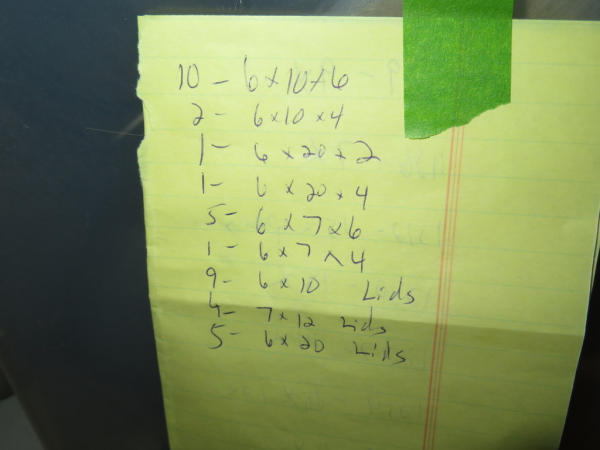 10 - 6x10x6
2 - 6x10x4
1 - 6x20x2
1 - 6x20x4
5 - 6x7x6
1 - 6x7x4
9 - 6x10 Lids
4 - 7x12 Lids
5 - 6x20 Lids